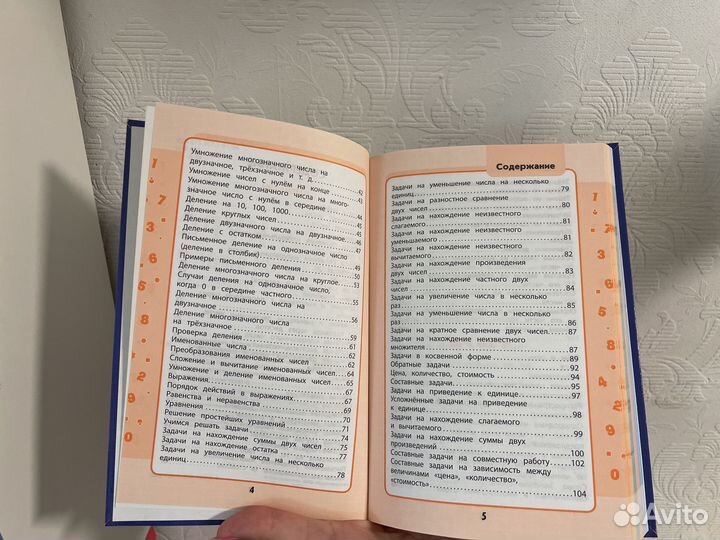 Умножение многозначного числа на
двузначное, трёхзначное и т. д. 42
Умножение чисел с нулём на конце 44
Умножение многозначного числа на много-
значное число с нулём в середине 44
Деление на 10, 100, 1000 45
Деление круглых чисел 45
Деление двузначного числа на двузначное 46
Деление с остатком 47
Письменное деление на однозначное число
(деление в столбик) 49
Примеры письменного деления 50
Деление многозначного числа на круглое 53
Случаи деления на однозначное число,
когда 0 в середине частного 55
Деление многозначного числа на
двузначное 56
Деление многозначного числа
на трёхзначное 59
Проверка деления 61
Именованные числа 62
Преобразования именованных чисел 62
Сложение и вычитание именованных чисел 64
Умножение и деление именованных чисел 65
Выражения 67
Порядок действий в выражениях 67
Равенства и неравенства 69
Уравнения 70
Решение простейших уравнений 71
Учимся решать задачи 74
Задачи на нахождение суммы двух чисел 75
Задачи на нахождение остатка 77
Задачи на увеличение числа на несколько
единиц 78
4
Содержание
Задачи на уменьшение числа на несколько
единиц 79
Задачи на разностное сравнение
двух чисел 80
Задачи на нахождение неизвестного
слагаемого 81
Задачи на нахождение неизвестного
уменьшаемого 81
Задачи на нахождение неизвестного
вычитаемого 82
Задачи на нахождение произведения
двух чисел 83
Задачи на нахождение частного двух
чисел 84
Задачи на увеличение числа в несколько
раз 85
Задачи на уменьшение числа в несколько
раз 86
Задачи на кратное сравнение двух чисел 87
Задачи на нахождение неизвестного
множителя 87
Задачи в косвенной форме 89
Обратные задачи 92
Цена, количество, стоимость 94
Составные задачи 95
Задачи на приведение к единице 96
Усложнённые задачи на приведение
к единице 98
Задачи на нахождение слагаемого
и вычитаемого 99
Задачи на нахождение суммы двух
произведений 100
Составные задачи на совместную работу 102
Составные задачи на зависимость между
величинами «цена», «количество»,
«стоимость» 104
5
Avito